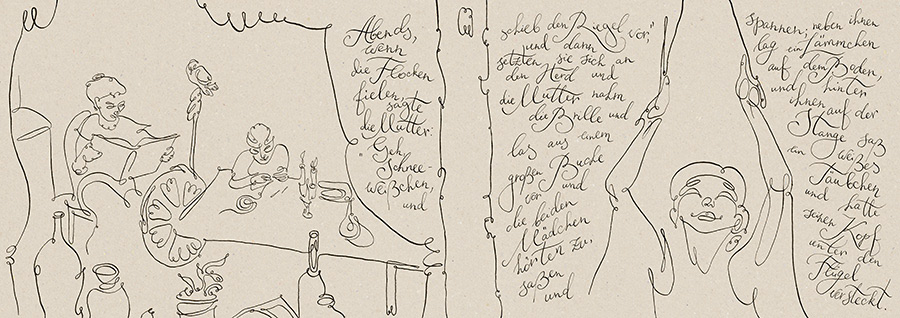 Abends,
wenn
die Flocken
fielen, sagte
die Mutter:
"Geh,
Schnee-
weißchen,
und
schieb den Riegel vor,"
und dann
setzten sie sich an
den Herd und
die Mutter nahm
die Brille und
las aus einem
großen Buche
vor und
die beiden
Mädchen
hörten zu,
saßen
und
spannen; neben ihnen
lag ein Lämmchen
auf dem Boden,
und hinter
ihnen auf der
Stange saß
ein weißes
Täubchen
und hatte
seinen Kopf
unter den
Flügel
versteckt.